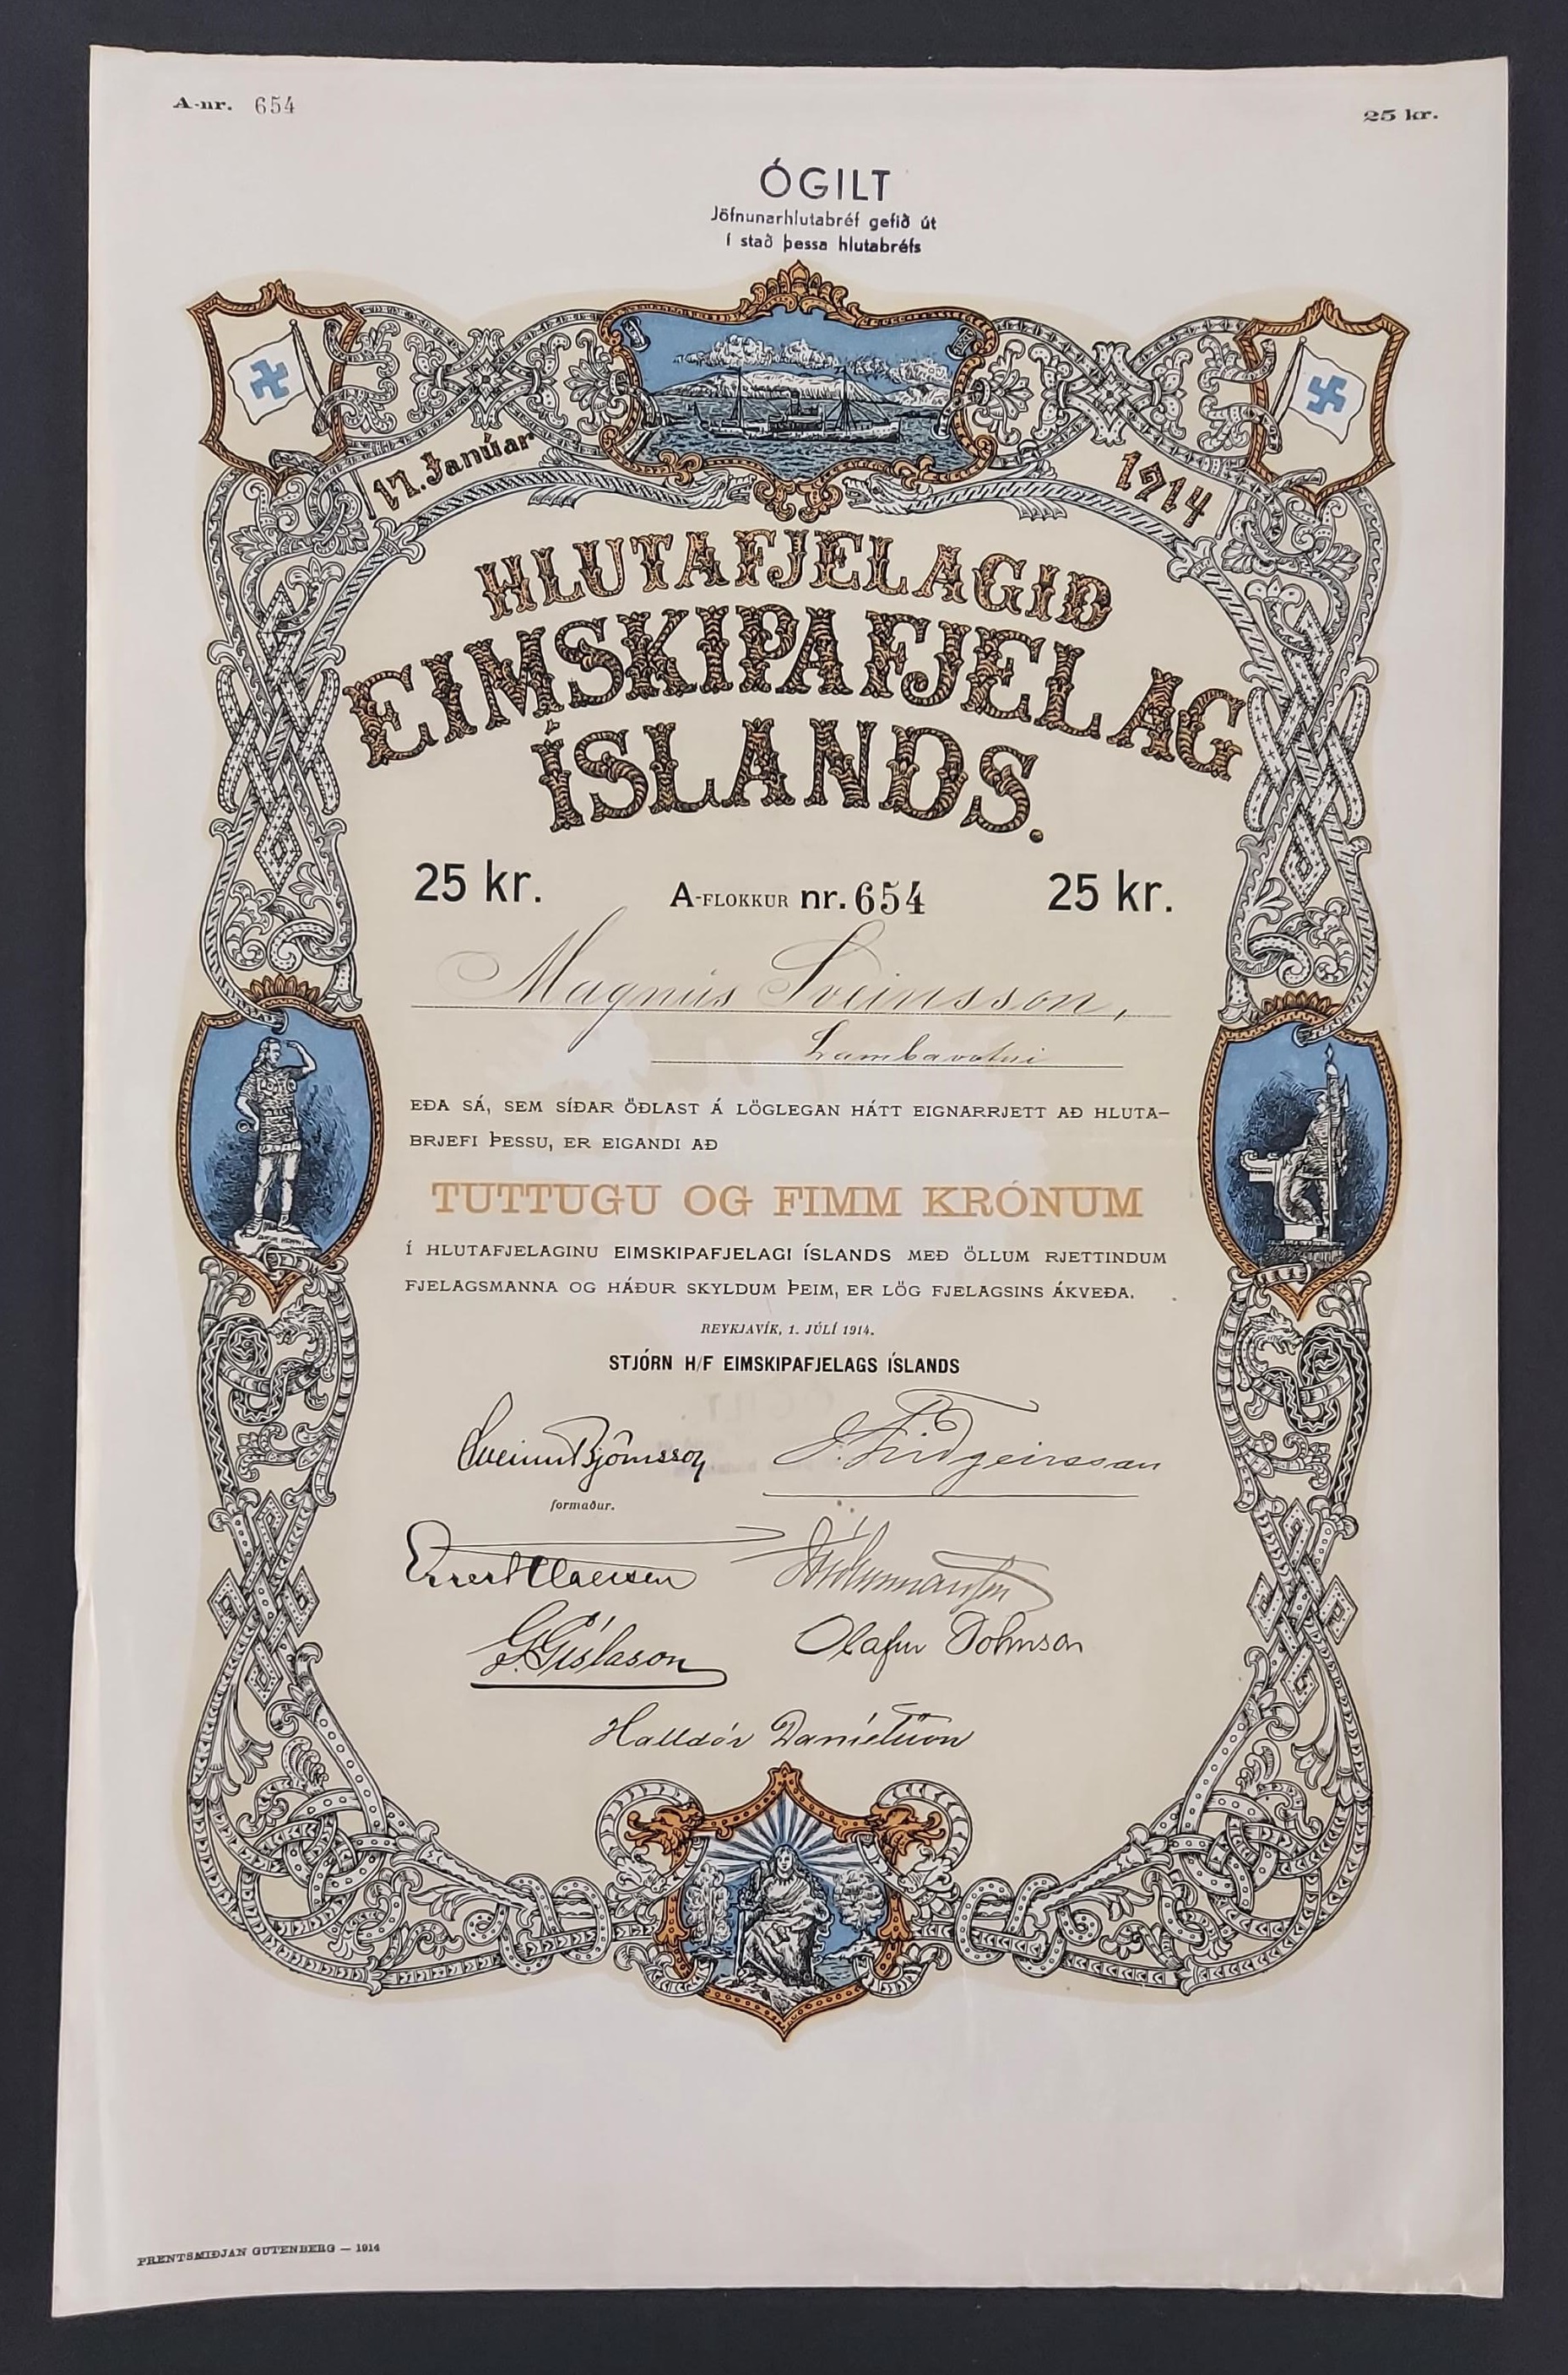 A-nr. 654
25 kr.
ÓGILT
Jöfnunarhlutabréf gefið út
í stað þessa hlutabréfs
17. Janúar
1914
HLUTAFJELAGIÐ
EIMSKIPAFJELAG
ÍSLANDS.
25 kr. A-FLOKKUR nr. 654 25 kr.
Magnús Sveinsson,
Lambavatni
EÐA SÁ, SEM SÍÐAR ÖÐLAST Á LÖGLEGAN HÁTT EIGNARRJETT AÐ HLUTA-
BRJEFI ÞESSU, ER EIGANDI AÐ
TUTTUGU OG FIMM KRÓNUM
Í HLUTAFJELAGINU EIMSKIPAFJELAGI ÍSLANDS MEÐ ÖLLUM RJETTINDUM
FJELAGSMANNA OG HÁÐUR SKYLDUM ÞEIM, ER LÖG FJELAGSINS ÁKVEÐA.
REYKJAVÍK, 1. JÚLÍ 1914.
STJÓRN H/F EIMSKIPAFJELAGS ÍSLANDS
Sveinn Björnsson
formaður.
Eggert Claessen
G. Gíslason
Olafur Johnson
Halldór Daníelsson
PRENTSMIÐJAN GUTENBERG — 1914